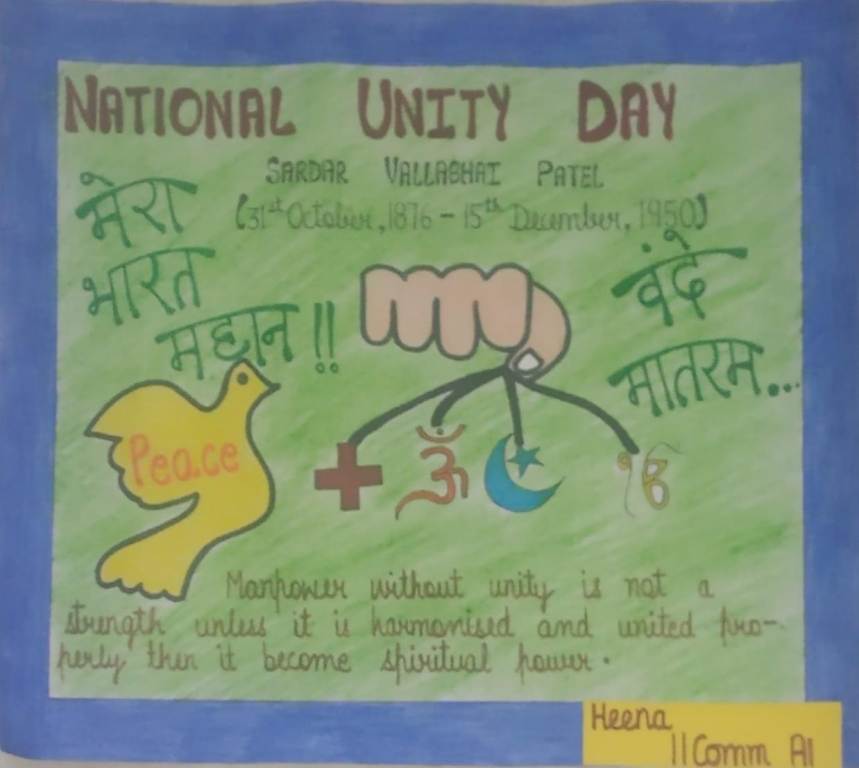 NATIONAL UNITY DAY
SARDAR VALLABHAI PATEL
(31st October, 1876 - 15th December, 1950)
मेरा
भारत
महान !!
वंदे
मातरम...
Peace
ॐ
ੴ
Manpower without unity is not a
strength unless it is harmonised and united pro-
perly then it become spiritual power.
Heena
11 Comm A1